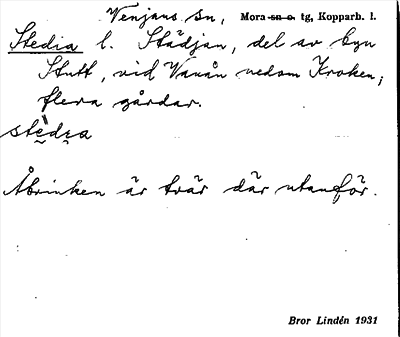 Venjans sn, Mora sn o. tg, Kopparb. l.
Stedia l. Städjan, del av byn
Stutt, vid Vanån nedom Kroken;
flera gårdar.
stèdra
Åbrinken är tvär där utanför.
Bror Lindén 1931